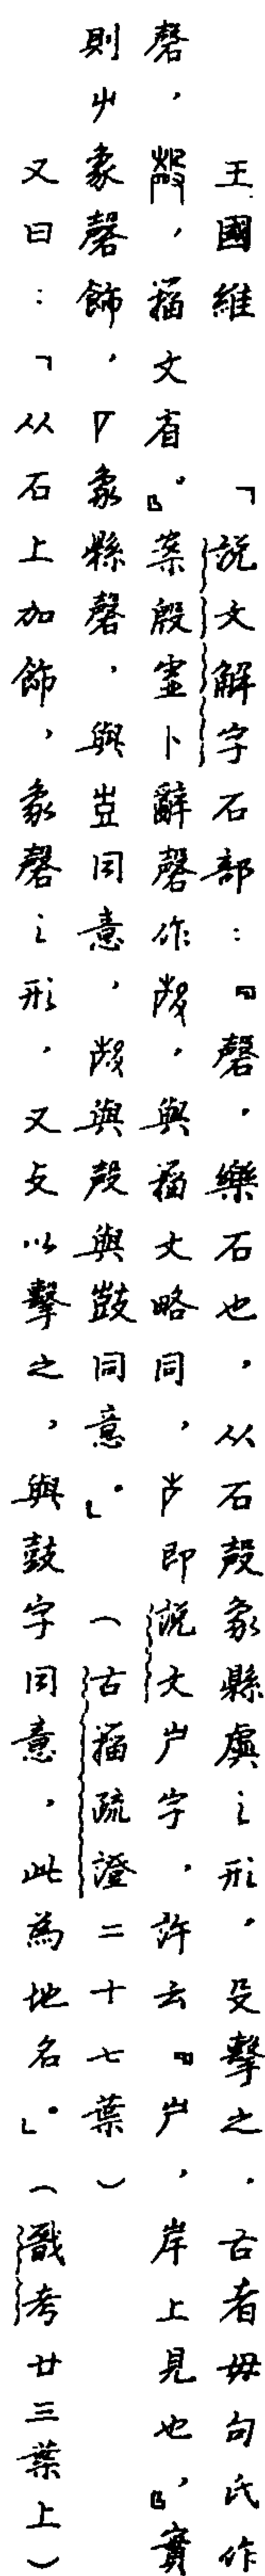 王國維　「說文解字石部：『磬，樂石也，从石殸象縣虡之形，殳擊之，古者毋句氏作
磬，𣪊，籀文省。』案殷虛卜辭磬作殸，與籀文略同，屵即說文屵字，許云『屵，岸上見也』，實
則屮象磬飾，𠂆象縣磬，與豈同意，殸與殸與鼓同意。」（古籀疏證二十七葉）
又曰：「从石上加飾，象磬之形，又攴以擊之，與鼓字同意，此為地名。」（戩考廿三葉上）